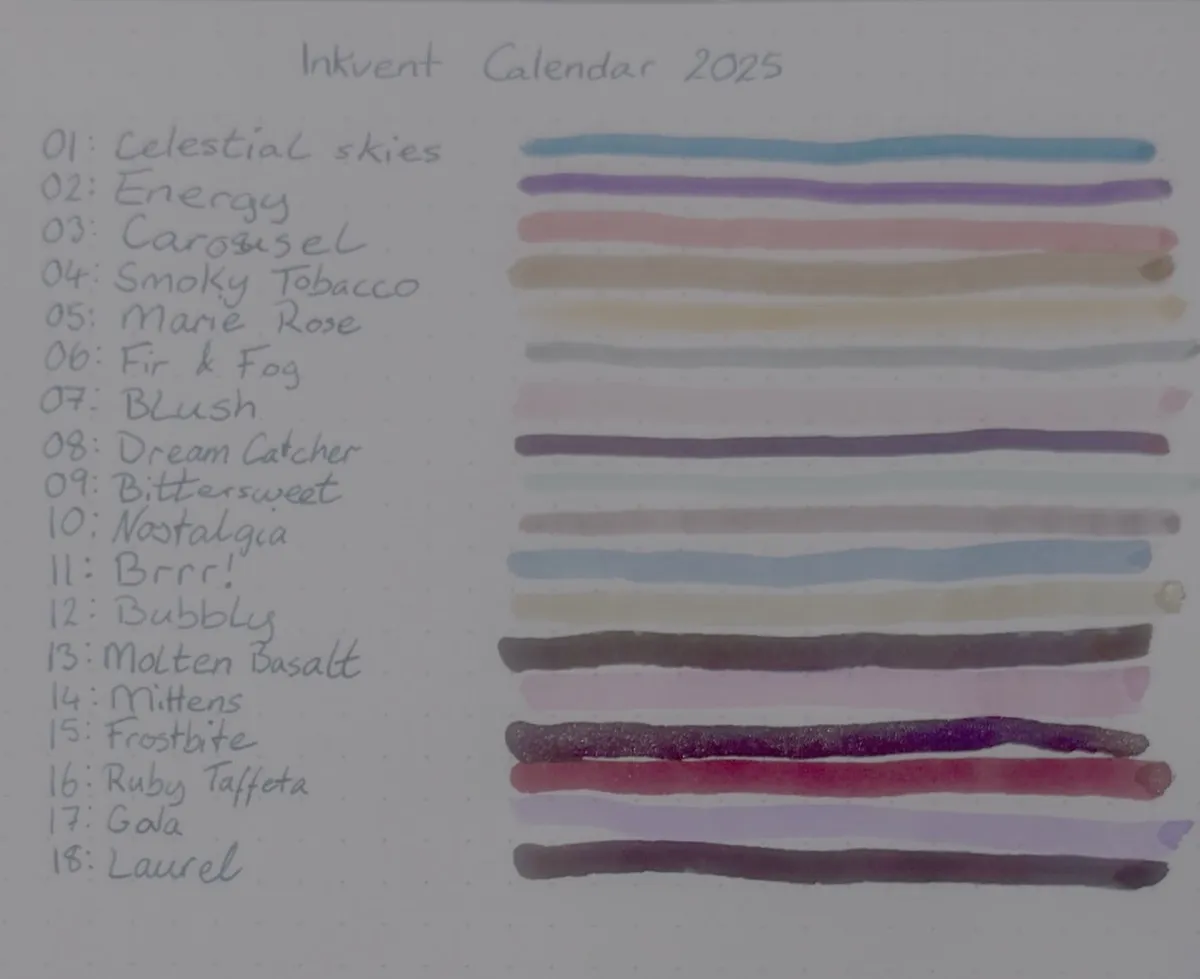 Inkvent Calendar 2025
01: Celestial skies
02: Energy
03: Carousel
04: Smoky Tobacco
05: Marie Rose
06: Fir & Fog
07: Blush
08: Dream Catcher
09: Bittersweet
10: Nostalgia
11: Brrr!
12: Bubbly
13: Molten Basalt
14: Mittens
15: Frostbite
16: Ruby Taffeta
17: Gala
18: Laurel